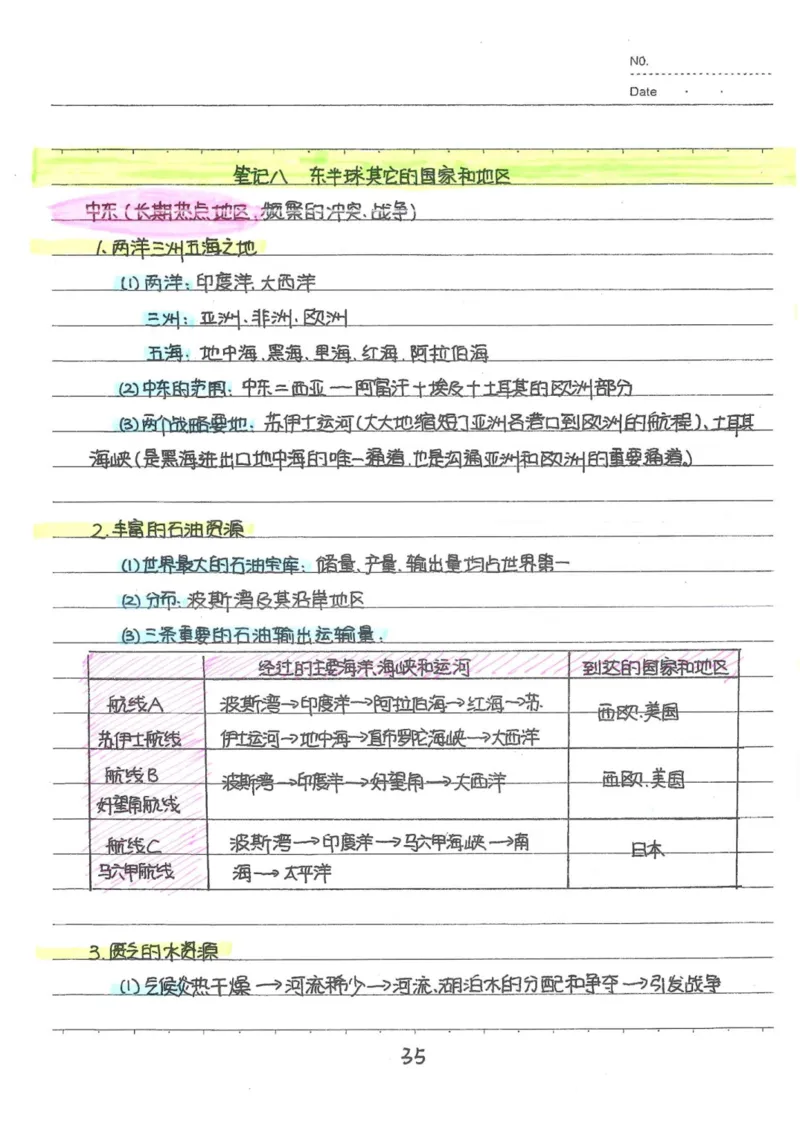 NO.
Date
笔记八 东半球其它的国家和地区
中东(长期热点地区,频繁的冲突、战争)
1、两洋三州五海之地
(1)两洋:印度洋、大西洋
三州:亚洲、非洲、欧洲
五海:地中海、黑海、里海、红海、阿拉伯海
(2)中东的范围:中东=西亚—阿富汗+埃及+土耳其的欧洲部分
(3)两个战略要地:苏伊士运河(大大地缩短了亚洲各港口到欧洲的航程)、土耳其
海峡(是黑海进出口地中海的唯一通道,也是沟通亚洲和欧洲的重要通道。)
2.丰富的石油资源
(1)世界最大的石油宝库:储量、产量、输出量均占世界第一
(2)分布:波斯湾及其沿岸地区
(3)三条重要的石油输出运输量:
经过的主要海洋、海峡和运河 到达的国家和地区
航线A 波斯湾→印度洋→阿拉伯海→红海→苏 西欧、美国
苏伊士航线 伊士运河→地中海→直布罗陀海峡→大西洋
航线B 波斯湾→印度洋→好望角→大西洋 西欧、美国
好望角航线
航线C 波斯湾→印度洋→马六甲海峡→南 日本
马六甲航线 海→太平洋
3.匮乏的水资源
(1)气候炎热干燥→河流稀少→河流、湖泊水的分配和争夺→引发战争
35